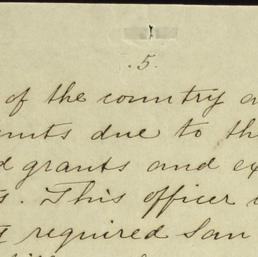 .5.
of the country a
nts due to th
d grants and ex
s. This officer
required San